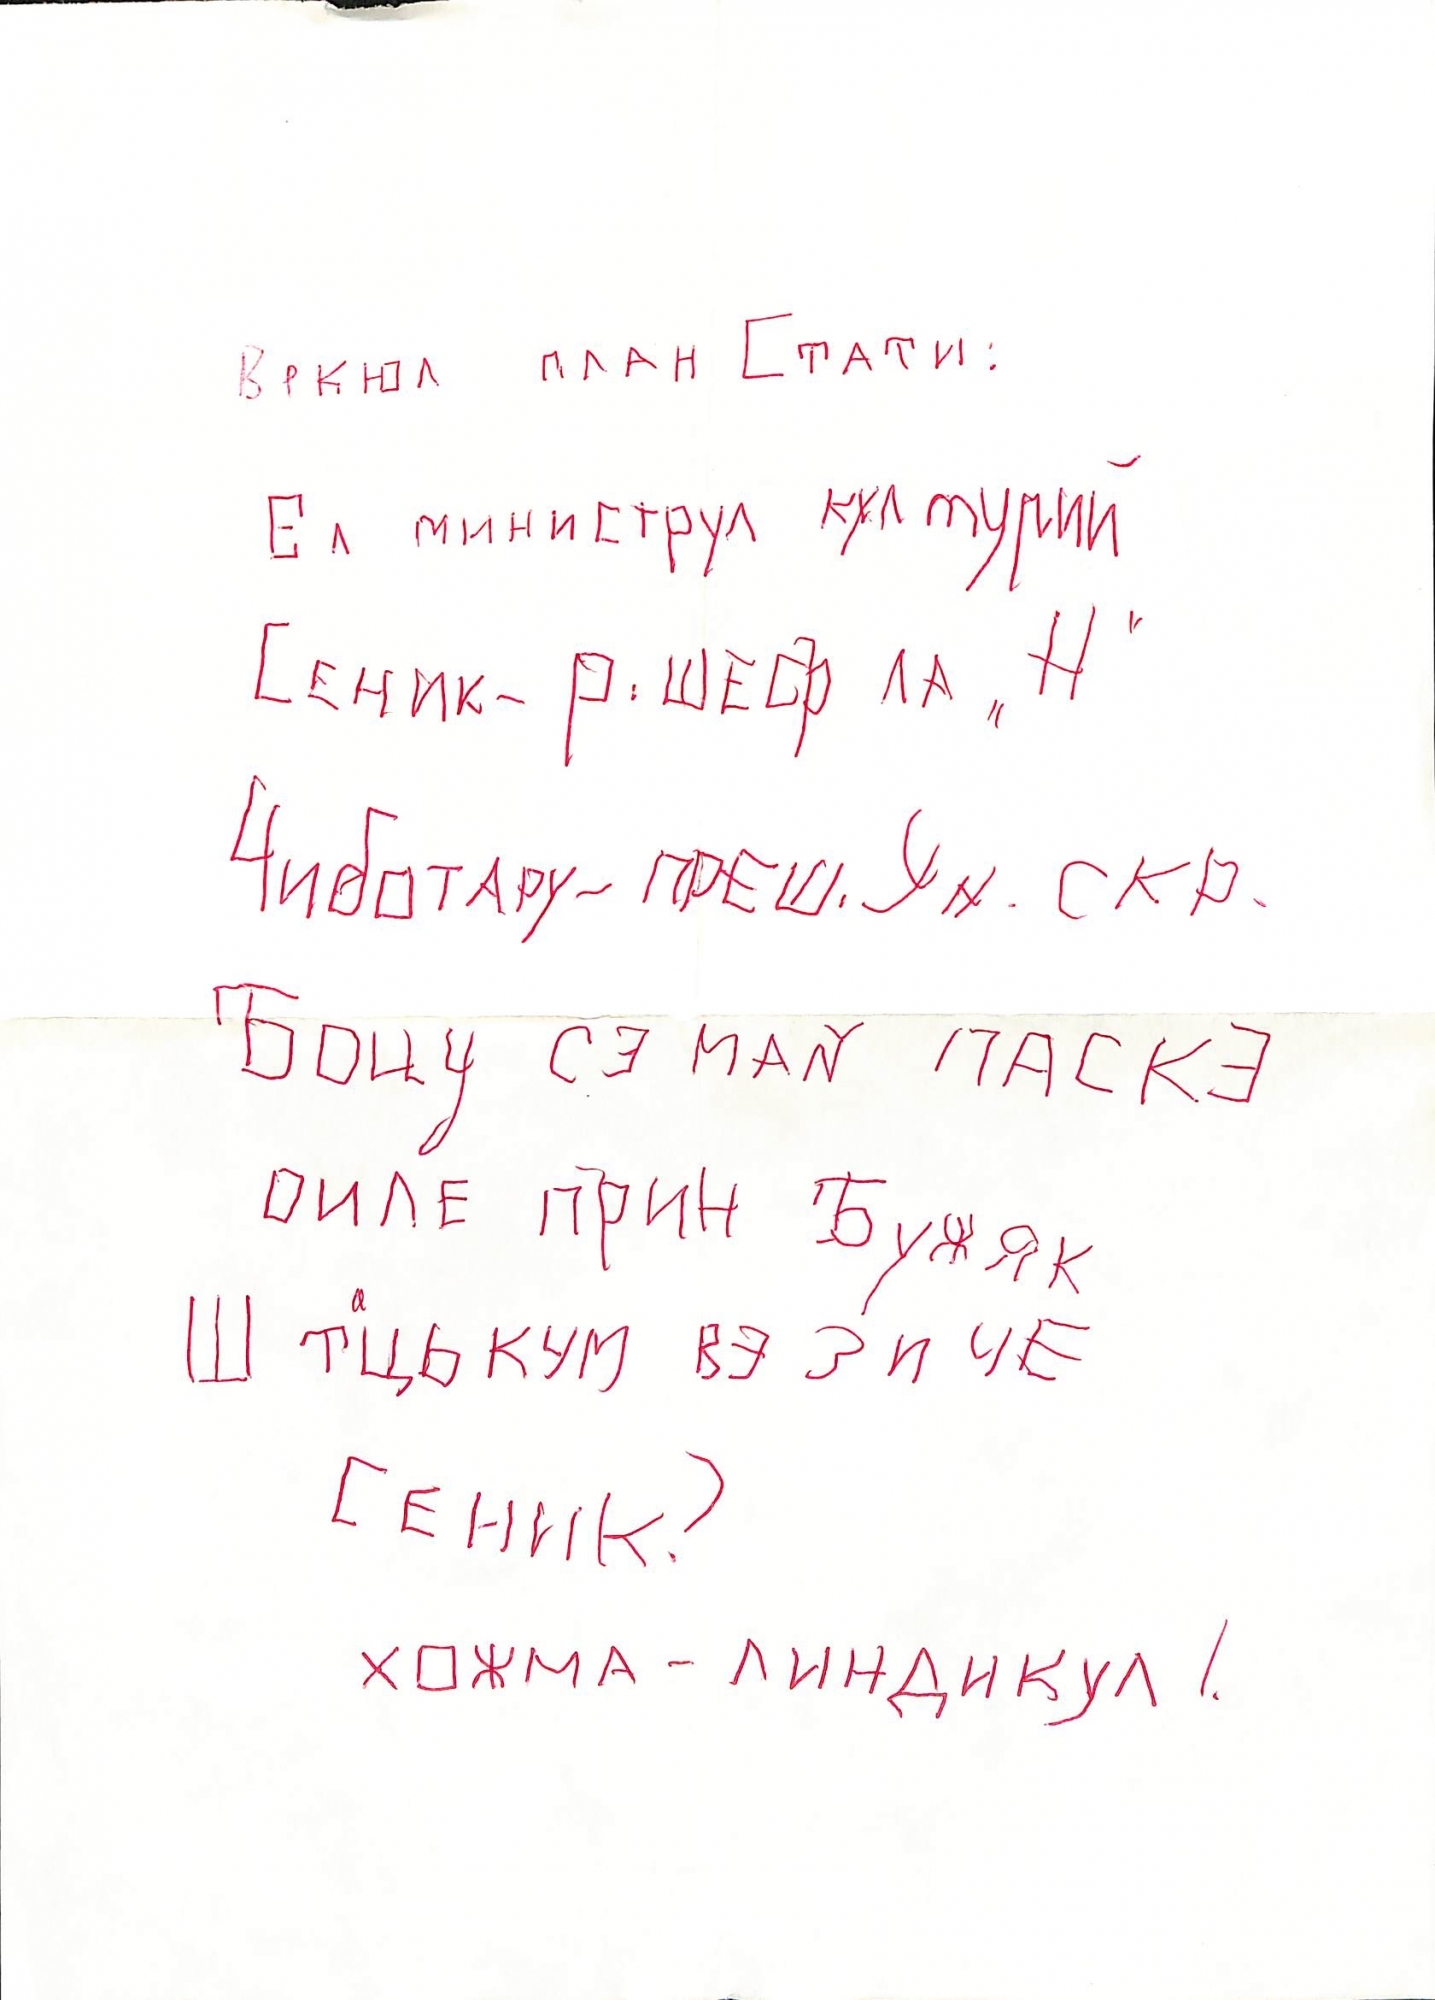 Вркюл план Стати:
Ел министрул култур​ий
Сеник - р.шеф ла „Н"
Чиботару - преш. Ун. скр.
Боцу сэ май паскэ
оиле прин Бужяк
Штацькум вэ зиче
Сеник?
хожма - линдикул!